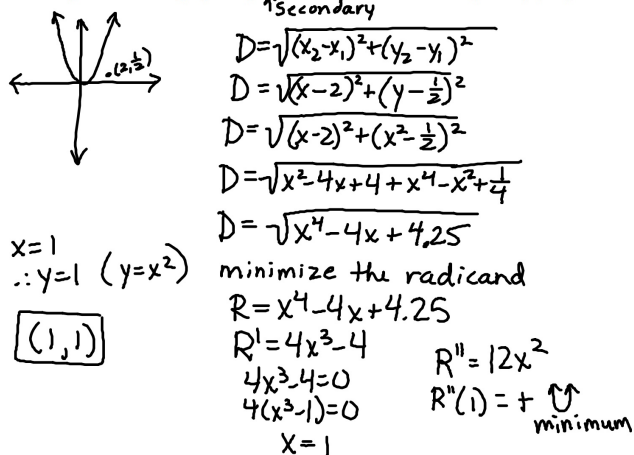 ↑secondary
(2,½)
D=√(x₂-x₁)²+(y₂-y₁)²
D=√(x-2)²+(y-½)²
D=√(x-2)²+(x²-½)²
D=√x²-4x+4+x⁴-x²+¼
D=√x⁴-4x+4.25
x=1
∴y=1 (y=x²)
(1,1)
minimize the radicand
R=x⁴-4x+4.25
R'=4x³-4
4x³-4=0
4(x³-1)=0
x=1
R''=12x²
R''(1)=+
minimum